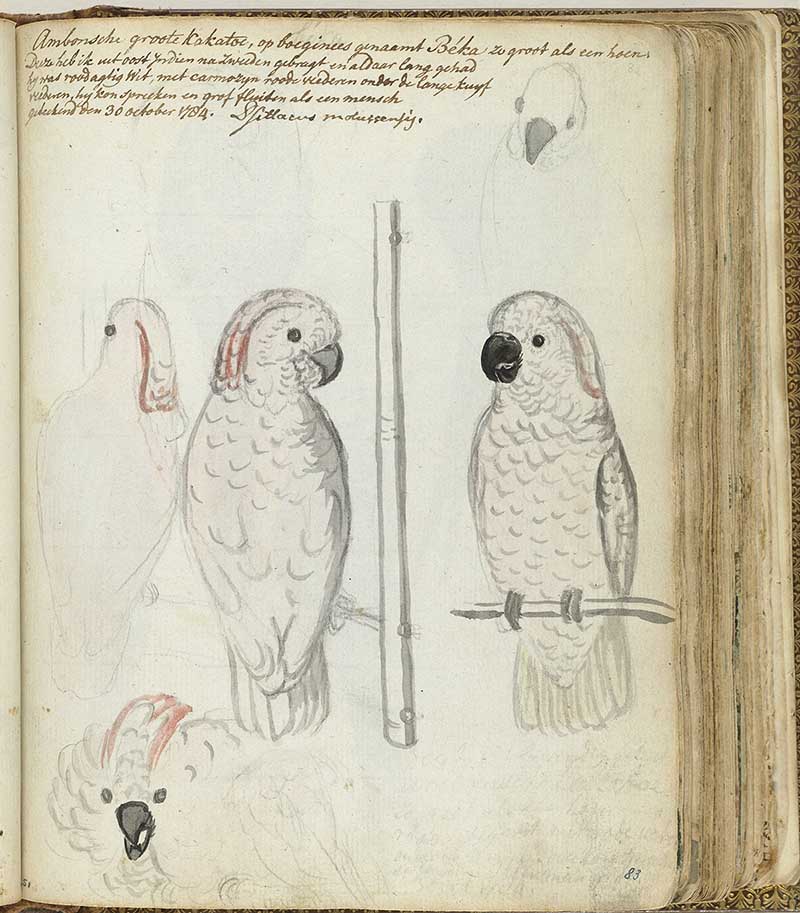 Ambonsche groote Kakatoe, op boeginees genaamt Béka zo groot als een hoen.
Deze heb ik uit oost Indien na Zweeden gebragt en aldaar lang gehad
hy was roodagtig wit, met carmozyn roode vederen onder de lange kuyf
vederen, hy kon spreeken en grof fluiten als een mensch
getekend den 30 october 1784. Psittacus moluccensis.
83